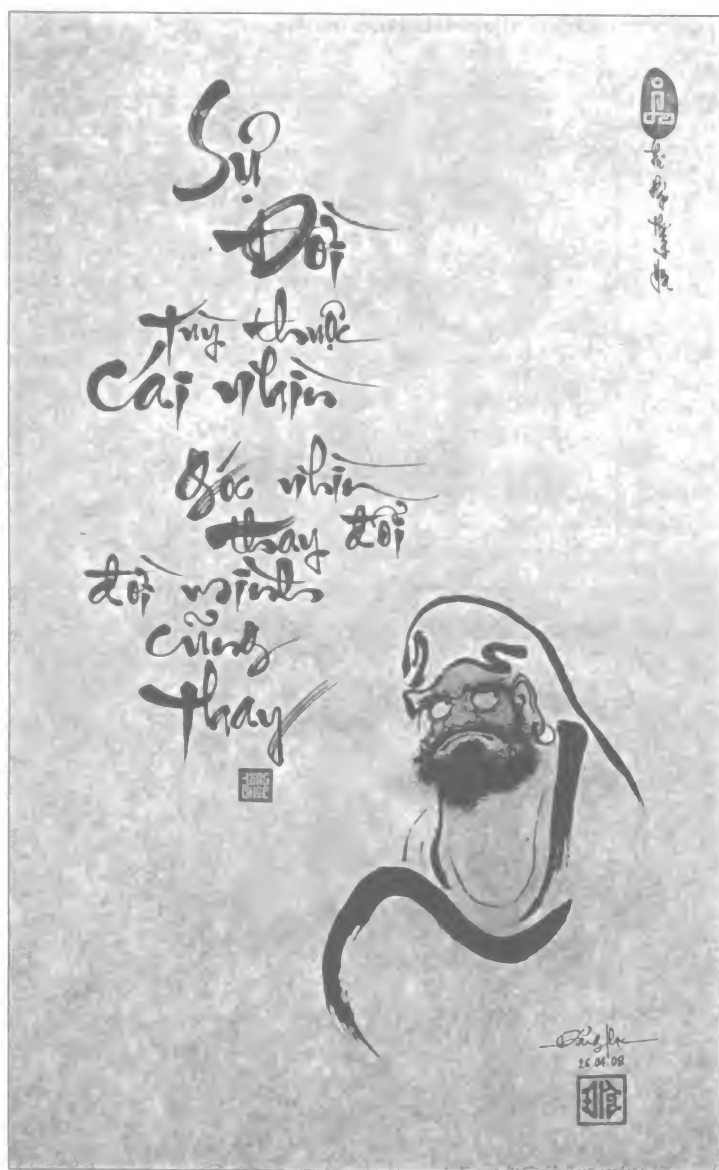 Sự
Đời
tùy thuộc
Cái nhìn
Góc nhìn
thay đổi
đời mình
cũng
thay
26.04.08